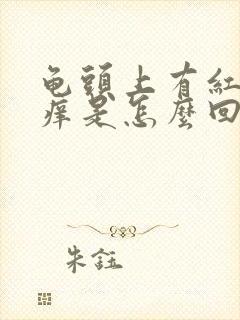 龟頭上有紅
痒是怎麼回
朱鈺